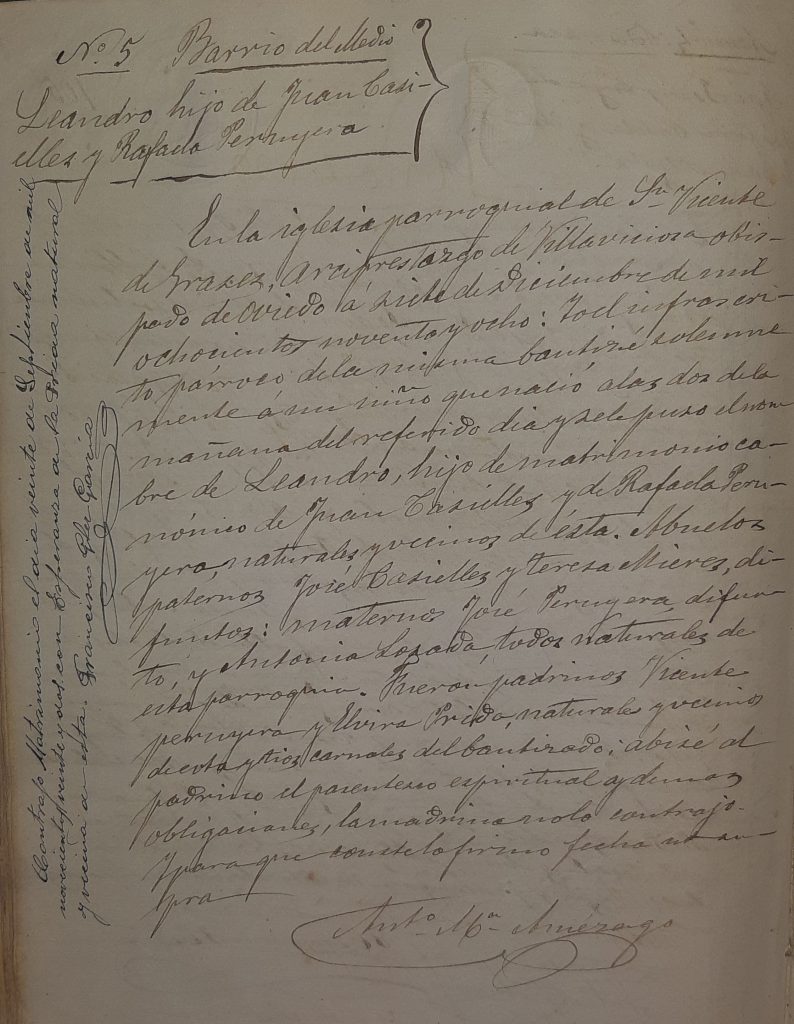 Nº 5 Barrio del Medio
Leandro hijo de Juan Casi-
elles y Rafaela Peruyera
En la iglesia parroquial de Sn Vicente
de Grases, Arciprestazgo de Villaviciosa obis-
pado de Oviedo á siete de Diciembre de mil
ochocientos noventa y ocho: Yo el infrascri-
to párroco de la misma bauticé solemne
mente á un niño que nació a las dos de la
mañana del referido dia y se le puso el nom
bre de Leandro, hijo de matrimonio ca-
nónico de Juan Casielles y de Rafaela Peru-
yera, naturales y vecinos de ésta. Abuelos
paternos José Casielles y Teresa Mieres, di-
funtos: maternos José Peruyera, difun-
to, y Antonia Lozada, todos naturales de
esta parroquia. Fueron padrinos Vicente
peruyera y Elvira Prida, naturales y vecinos
de esta y tios carnales del bautizado; abisé al
padrino el parentesco espiritual y demas
obligaciones, la madrina no lo contrajo.
Y para que conste lo firmo fecha ut su-
pra
Antº Mª Amézaga
Contrajo Matrimonio el dia veinte de Septiembre de mil
novecientos veinte y dos con Esperanza de la Prida natural
y vecina de esta. Francisco García